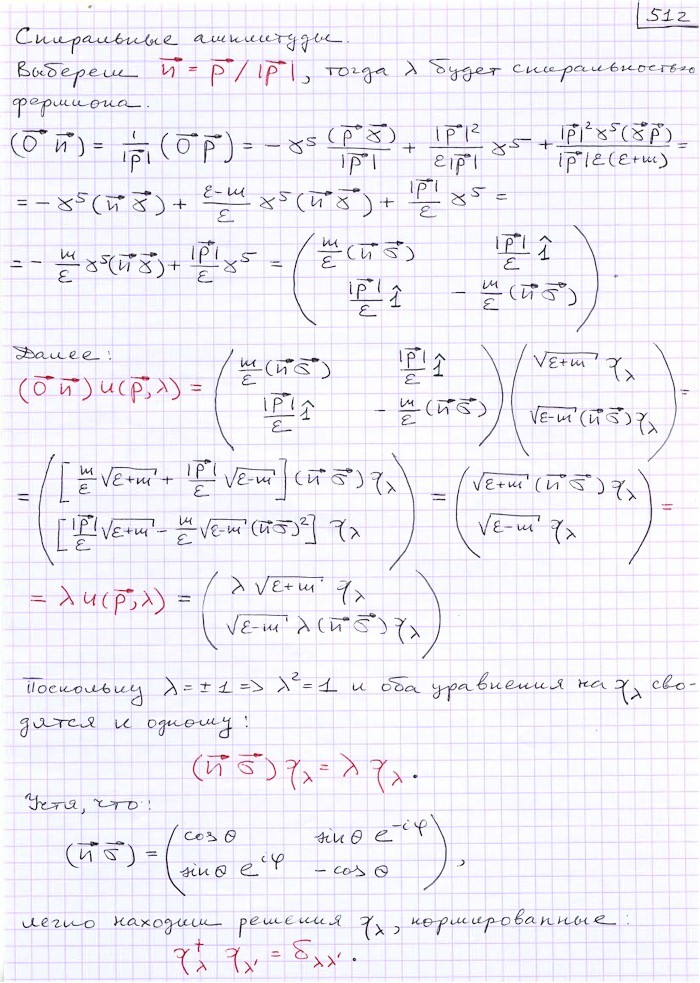 512
Спиральные амплитуды.
Выберем \vec{n} = \vec{p} / |\vec{p}|, тогда λ будет спиральностью
фермиона.
(\vec{O} \vec{n}) = \frac{1}{|\vec{p}|} (\vec{O} \vec{p}) = - γ^5 \frac{(\vec{p} \vec{γ})}{|\vec{p}|} + \frac{|\vec{p}|^2}{ε|\vec{p}|} γ^5 + \frac{|\vec{p}|^2 γ^5 (\vec{γ} \vec{p})}{|\vec{p}| ε (ε+m)} =
= - γ^5 (\vec{n} \vec{γ}) + \frac{ε-m}{ε} γ^5 (\vec{n} \vec{γ}) + \frac{|\vec{p}|}{ε} γ^5 =
= - \frac{m}{ε} γ^5 (\vec{n} \vec{γ}) + \frac{|\vec{p}|}{ε} γ^5 = \begin{pmatrix} \frac{m}{ε} (\vec{n} \vec{σ}) & \frac{|\vec{p}|}{ε} \hat{1} \\ \frac{|\vec{p}|}{ε} \hat{1} & - \frac{m}{ε} (\vec{n} \vec{σ}) \end{pmatrix}.
Далее:
(\vec{O} \vec{n}) u(\vec{p}, λ) = \begin{pmatrix} \frac{m}{ε} (\vec{n} \vec{σ}) & \frac{|\vec{p}|}{ε} \hat{1} \\ \frac{|\vec{p}|}{ε} \hat{1} & - \frac{m}{ε} (\vec{n} \vec{σ}) \end{pmatrix} \begin{pmatrix} \sqrt{ε+m} χ_λ \\ \sqrt{ε-m} (\vec{n} \vec{σ}) χ_λ \end{pmatrix} =
= \begin{pmatrix} [\frac{m}{ε} \sqrt{ε+m} + \frac{|\vec{p}|}{ε} \sqrt{ε-m}] (\vec{n} \vec{σ}) χ_λ \\ [\frac{|\vec{p}|}{ε} \sqrt{ε+m} - \frac{m}{ε} \sqrt{ε-m} (\vec{n} \vec{σ})^2] χ_λ \end{pmatrix} = \begin{pmatrix} \sqrt{ε+m} (\vec{n} \vec{σ}) χ_λ \\ \sqrt{ε-m} χ_λ \end{pmatrix} =
= λ u(\vec{p}, λ) = \begin{pmatrix} λ \sqrt{ε+m} χ_λ \\ \sqrt{ε-m} λ (\vec{n} \vec{σ}) χ_λ \end{pmatrix}
Поскольку λ = ±1 => λ^2 = 1 и оба уравнения на χ_λ сво-
дятся к одному:
(\vec{n} \vec{σ}) χ_λ = λ χ_λ.
Учтя, что:
(\vec{n} \vec{σ}) = \begin{pmatrix} cos θ & sin θ e^{-iφ} \\ sin θ e^{iφ} & - cos θ \end{pmatrix},
легко находим решения χ_λ, нормированные:
χ_λ^† χ_{λ'} = δ_{λλ'}.